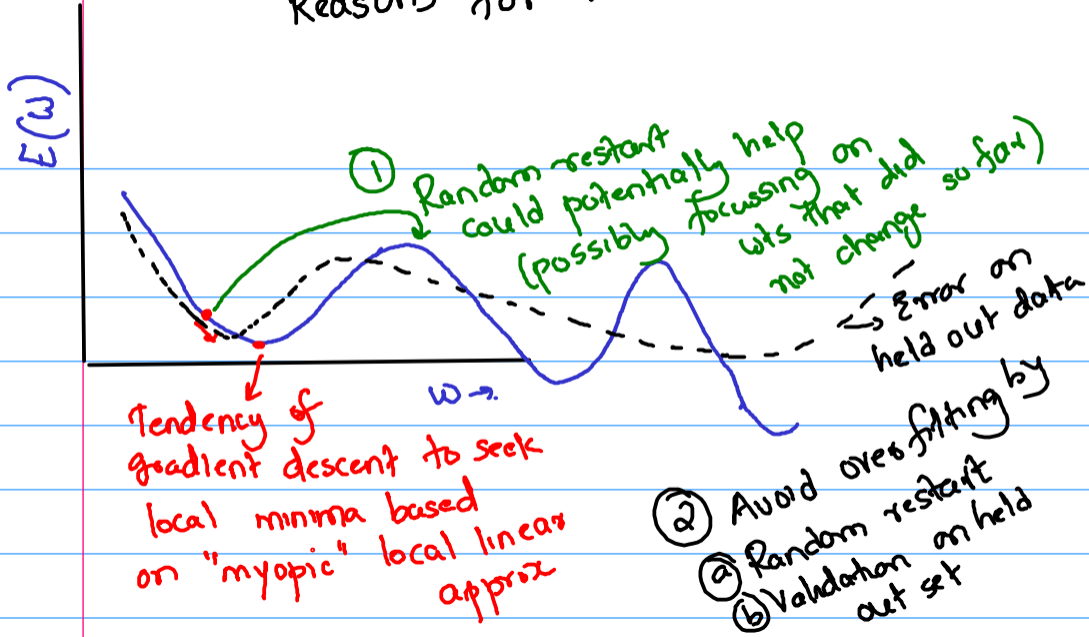 Reasons for
E(w)
① Random restart
could potentially help
(possibly focussing on
wts that did
not change so far)
Error on
held out data
w →
Tendency of
gradient descent to seek
local minima based
on "myopic" local linear
approx
② Avoid overfitting by
ⓐ Random restart
ⓑ Validation on held
out set